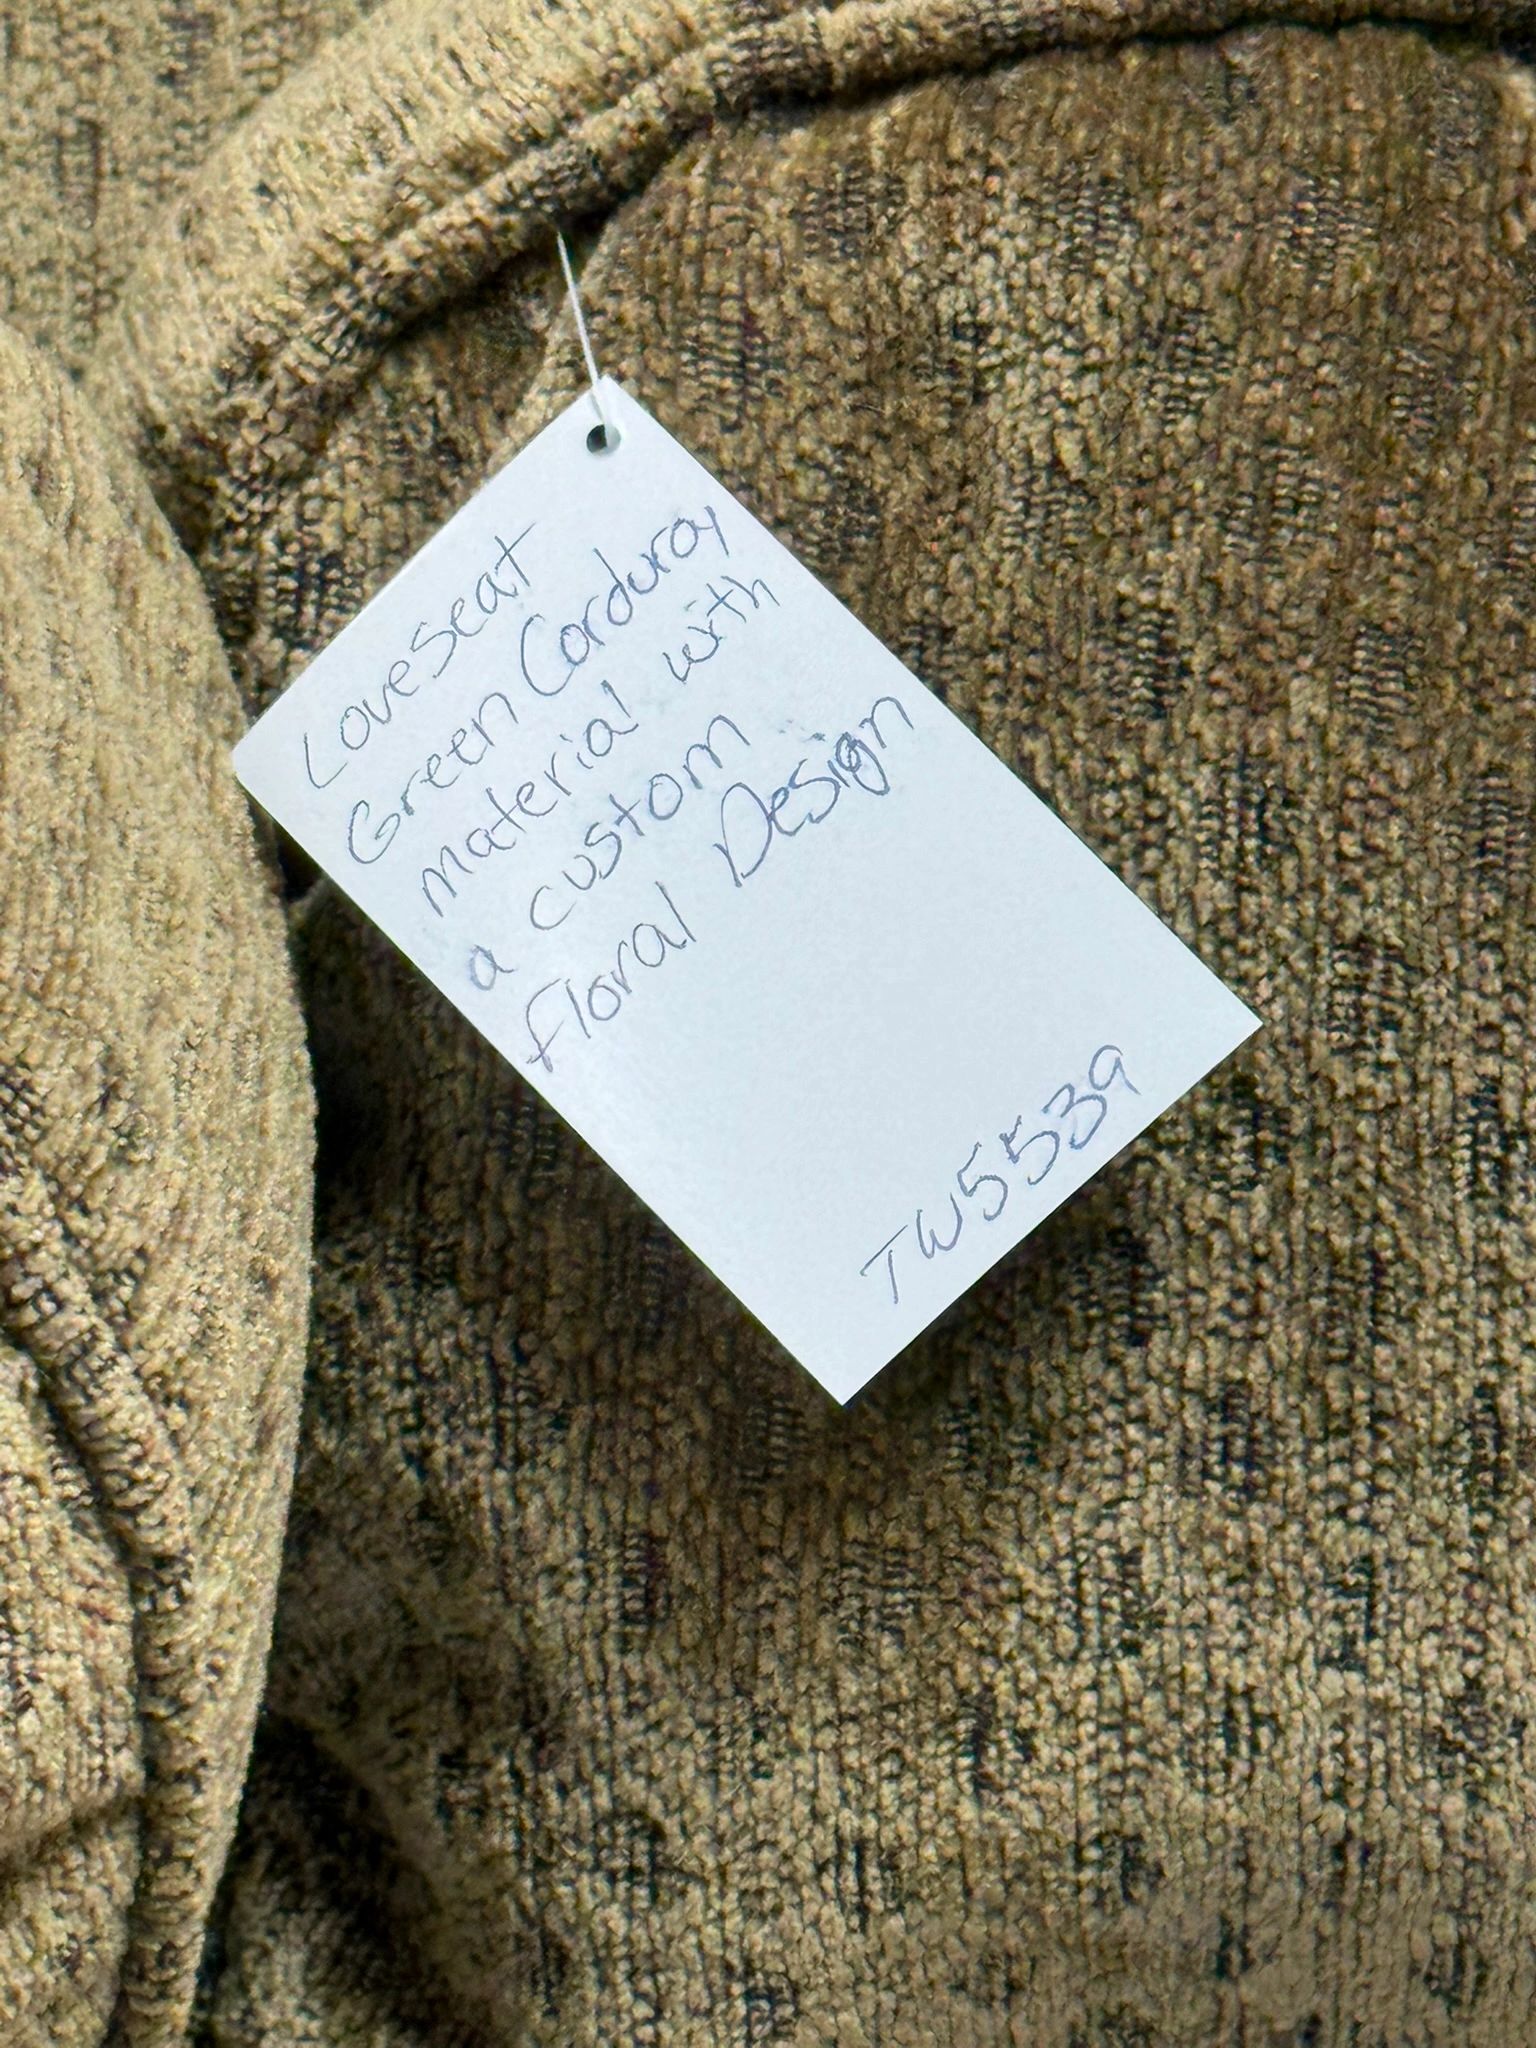 Loveseat
Green Corduroy
material with
a custom
floral Design
TW5539